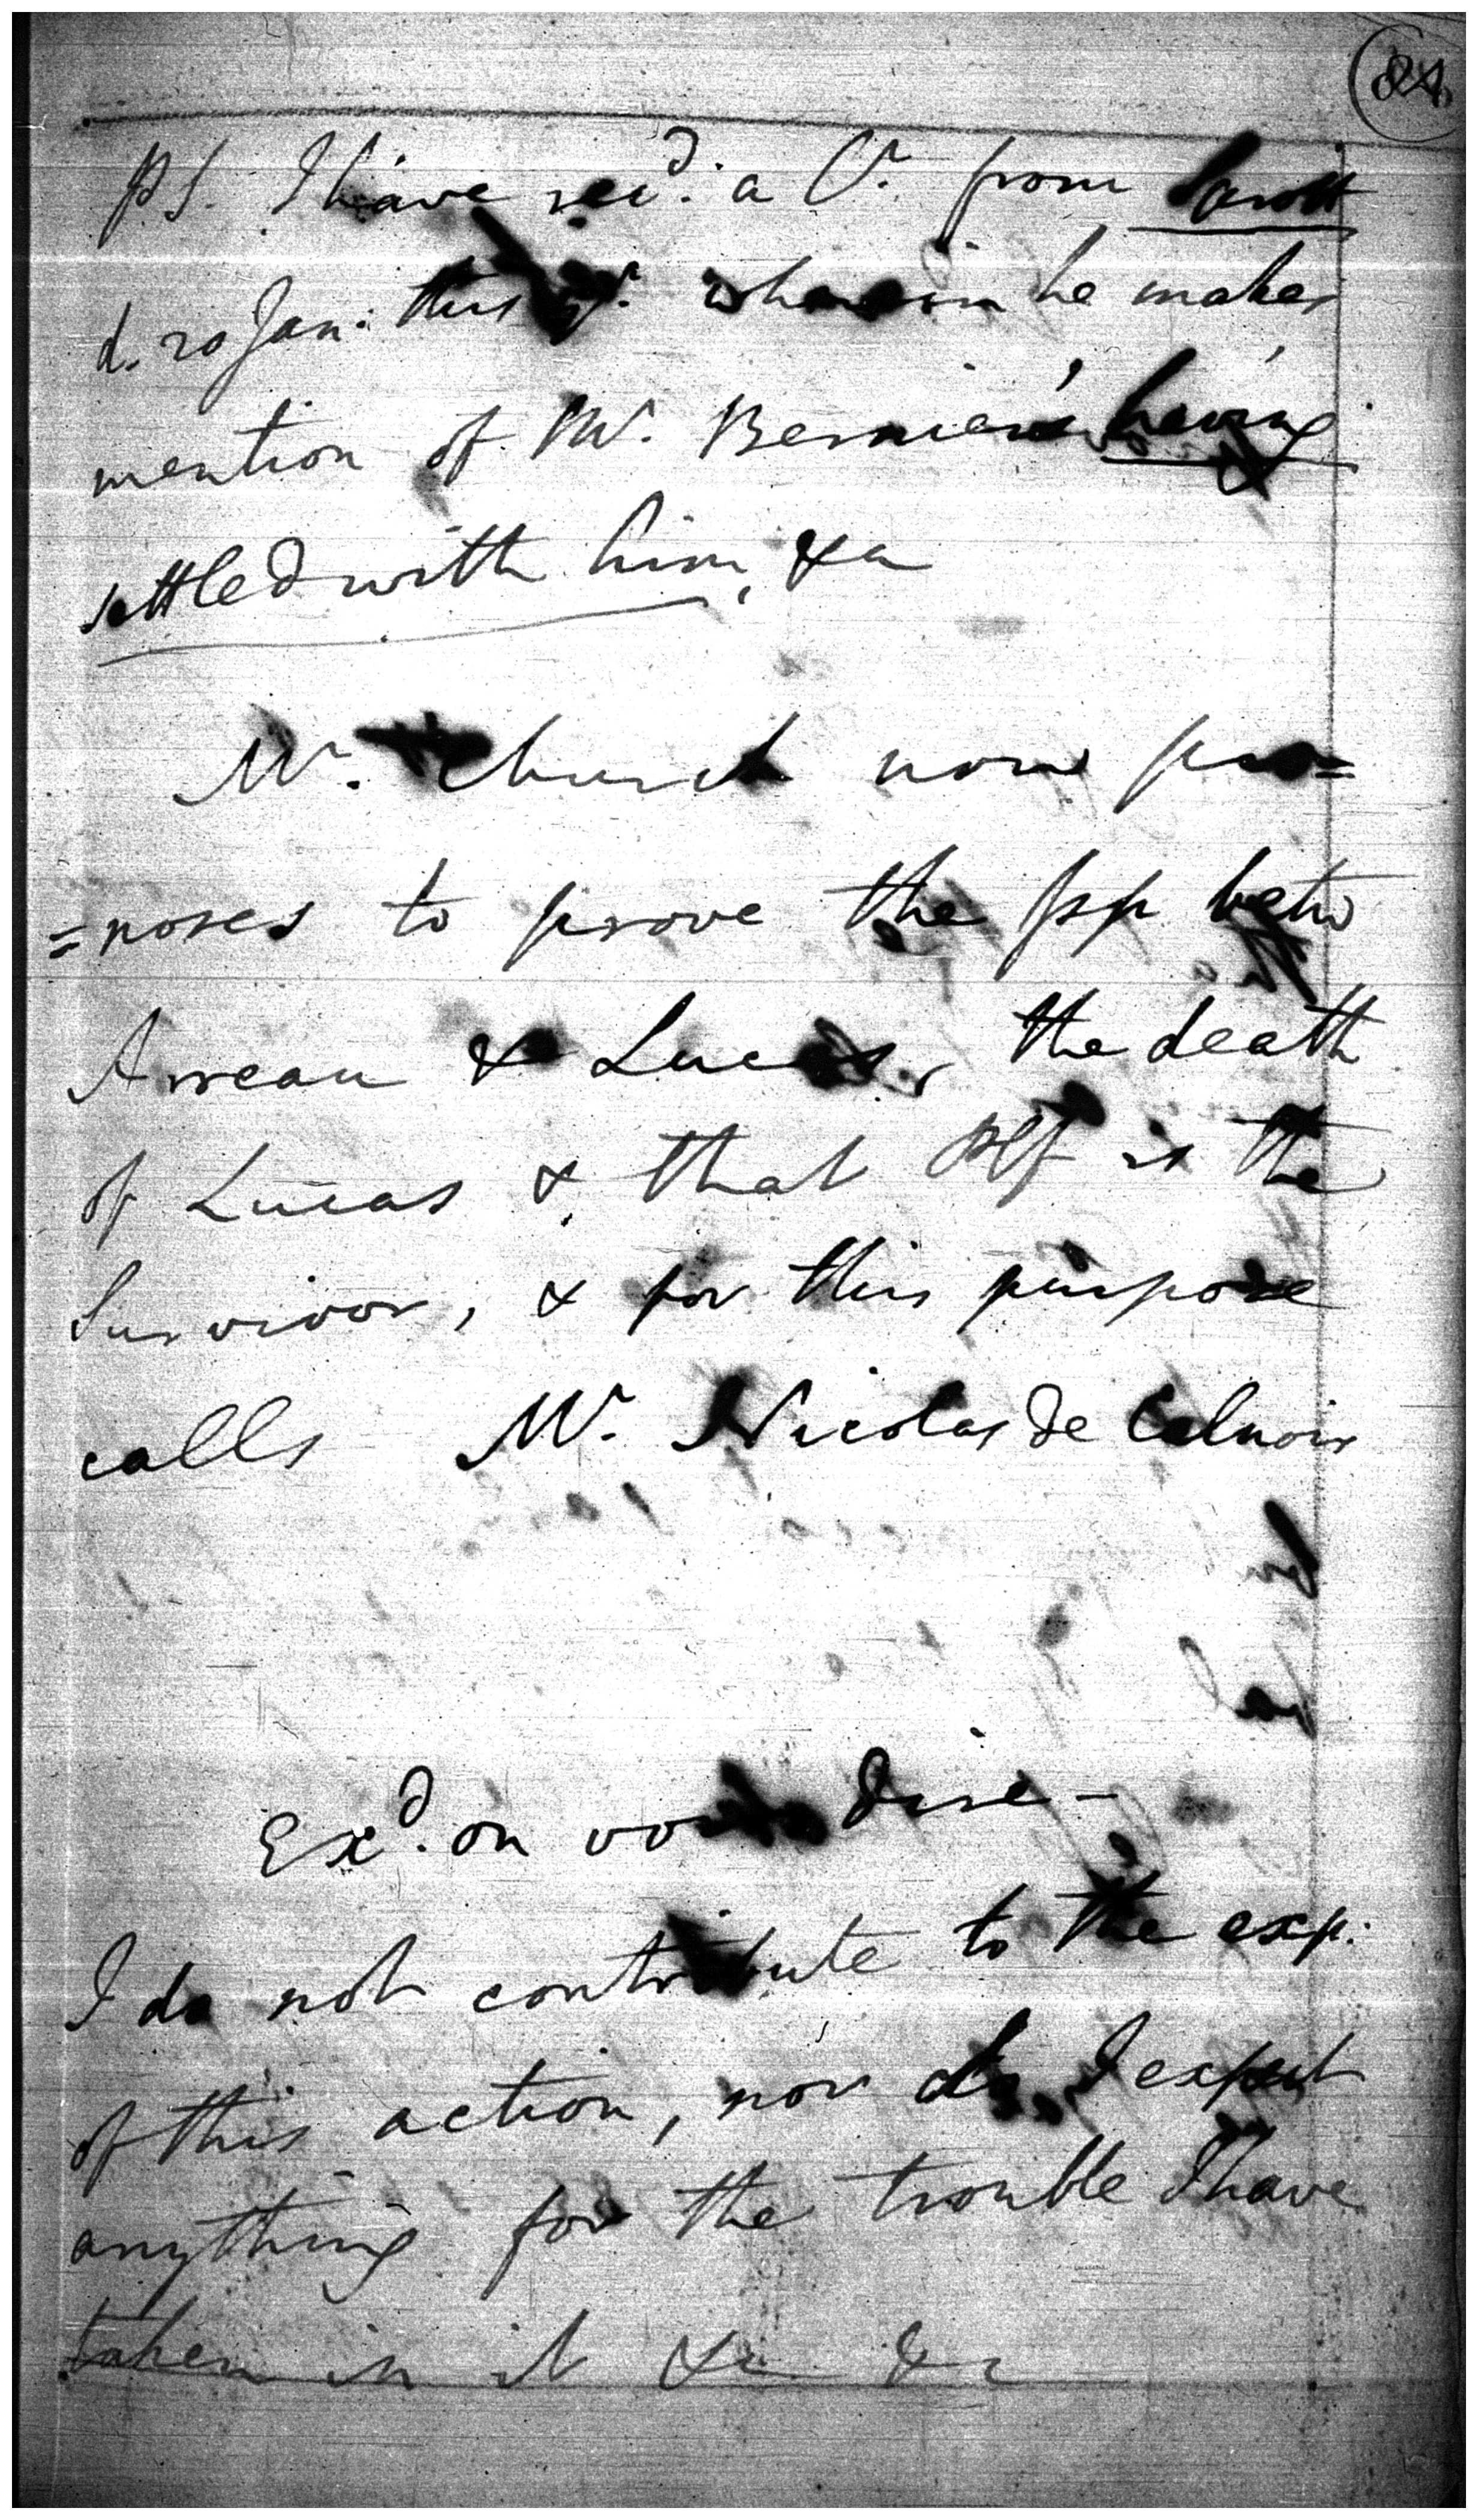 P.S. I have recd. a Lr. from
d. 20 Jan: this yr. wherein he makes
mention of Mr. Bernier's having
settled with him, &a
Mr. Church now pro=
=poses to prove the psp betw
& Lucas, the death
of Lucas & that Plf is the
Survivor, & for this purpose
calls Mr. Nicolas de
Exd. on voire dire -
I do not contribute to the exp.
of this action, nor do I expect
anything for the trouble I have
taken in it &c &c